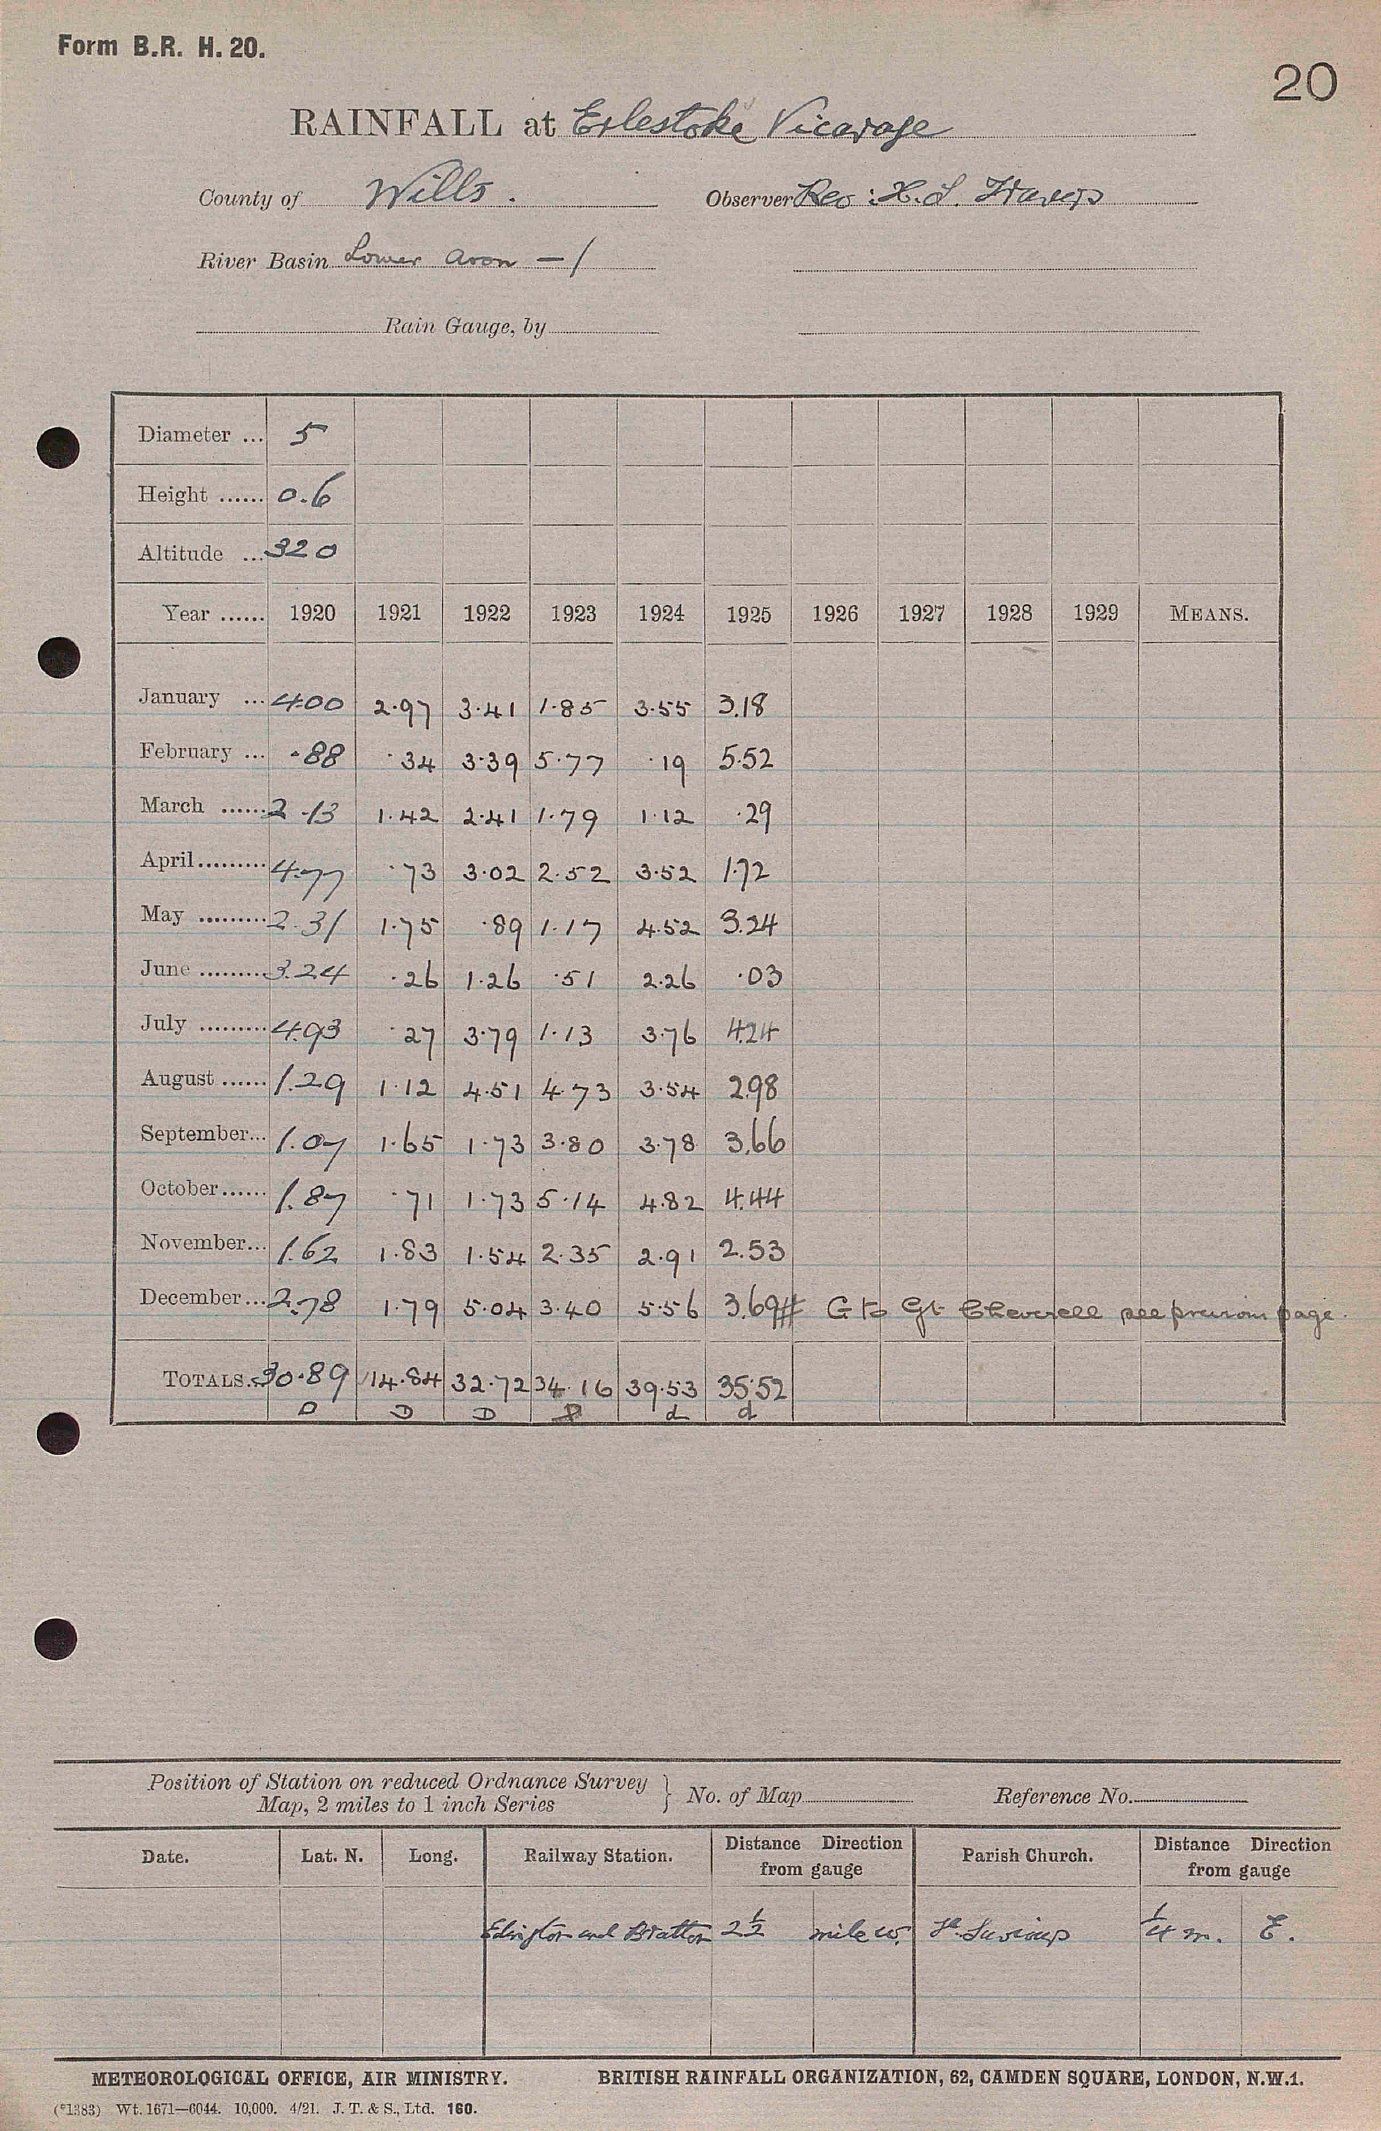 Form B.R. H. 20.
20
RAINFALL at Erlestoke Vicarage
County of Wilts. Observer Rev: H.S.
River Basin Lower Avon - 1
Rain Gauge, by
Diameter ... 5
Height ...... 0.6
Altitude ... 320
Year ...... 1920 1921 1922 1923 1924 1925 1926 1927 1928 1929 MEANS.
January ... 4.00 2.97 3.41 1.85 3.55 3.18
February ... .88 .34 3.39 5.77 .19 5.52
March ...... 2.13 1.42 2.41 1.79 1.12 .29
April ......... 4.77 .73 3.02 2.52 3.52 1.72
May ......... 2.31 1.75 .89 1.17 4.52 3.24
June ......... 3.24 .26 1.26 .51 2.26 .03
July ......... 4.93 .27 3.79 1.13 3.76 4.24
August ...... 1.29 1.12 4.51 4.73 3.54 2.98
September... 1.07 1.65 1.73 3.80 3.78 3.66
October...... 1.87 .71 1.73 5.14 4.82 4.44
November... 1.62 1.83 1.54 2.35 2.91 2.53
December... 2.78 1.79 5.04 3.40 5.56 3.69# G to Gt Cheverell see previous page.
TOTALS... 30.89 14.84 32.72 34.16 39.53 35.52
D D D D d d
Position of Station on reduced Ordnance Survey
Map, 2 miles to 1 inch Series } No. of Map Reference No.
Date. Lat. N. Long. Railway Station. Distance Direction from gauge Parish Church. Distance Direction from gauge
Edington and Bratton 2 1/2 mile W. St. Saviours 1/4 m. E.
METEOROLOGICAL OFFICE, AIR MINISTRY. BRITISH RAINFALL ORGANIZATION, 62, CAMDEN SQUARE, LONDON, N.W.1.
(*1383) Wt. 1671—6044. 10,000. 4/21. J. T. & S., Ltd. 160.